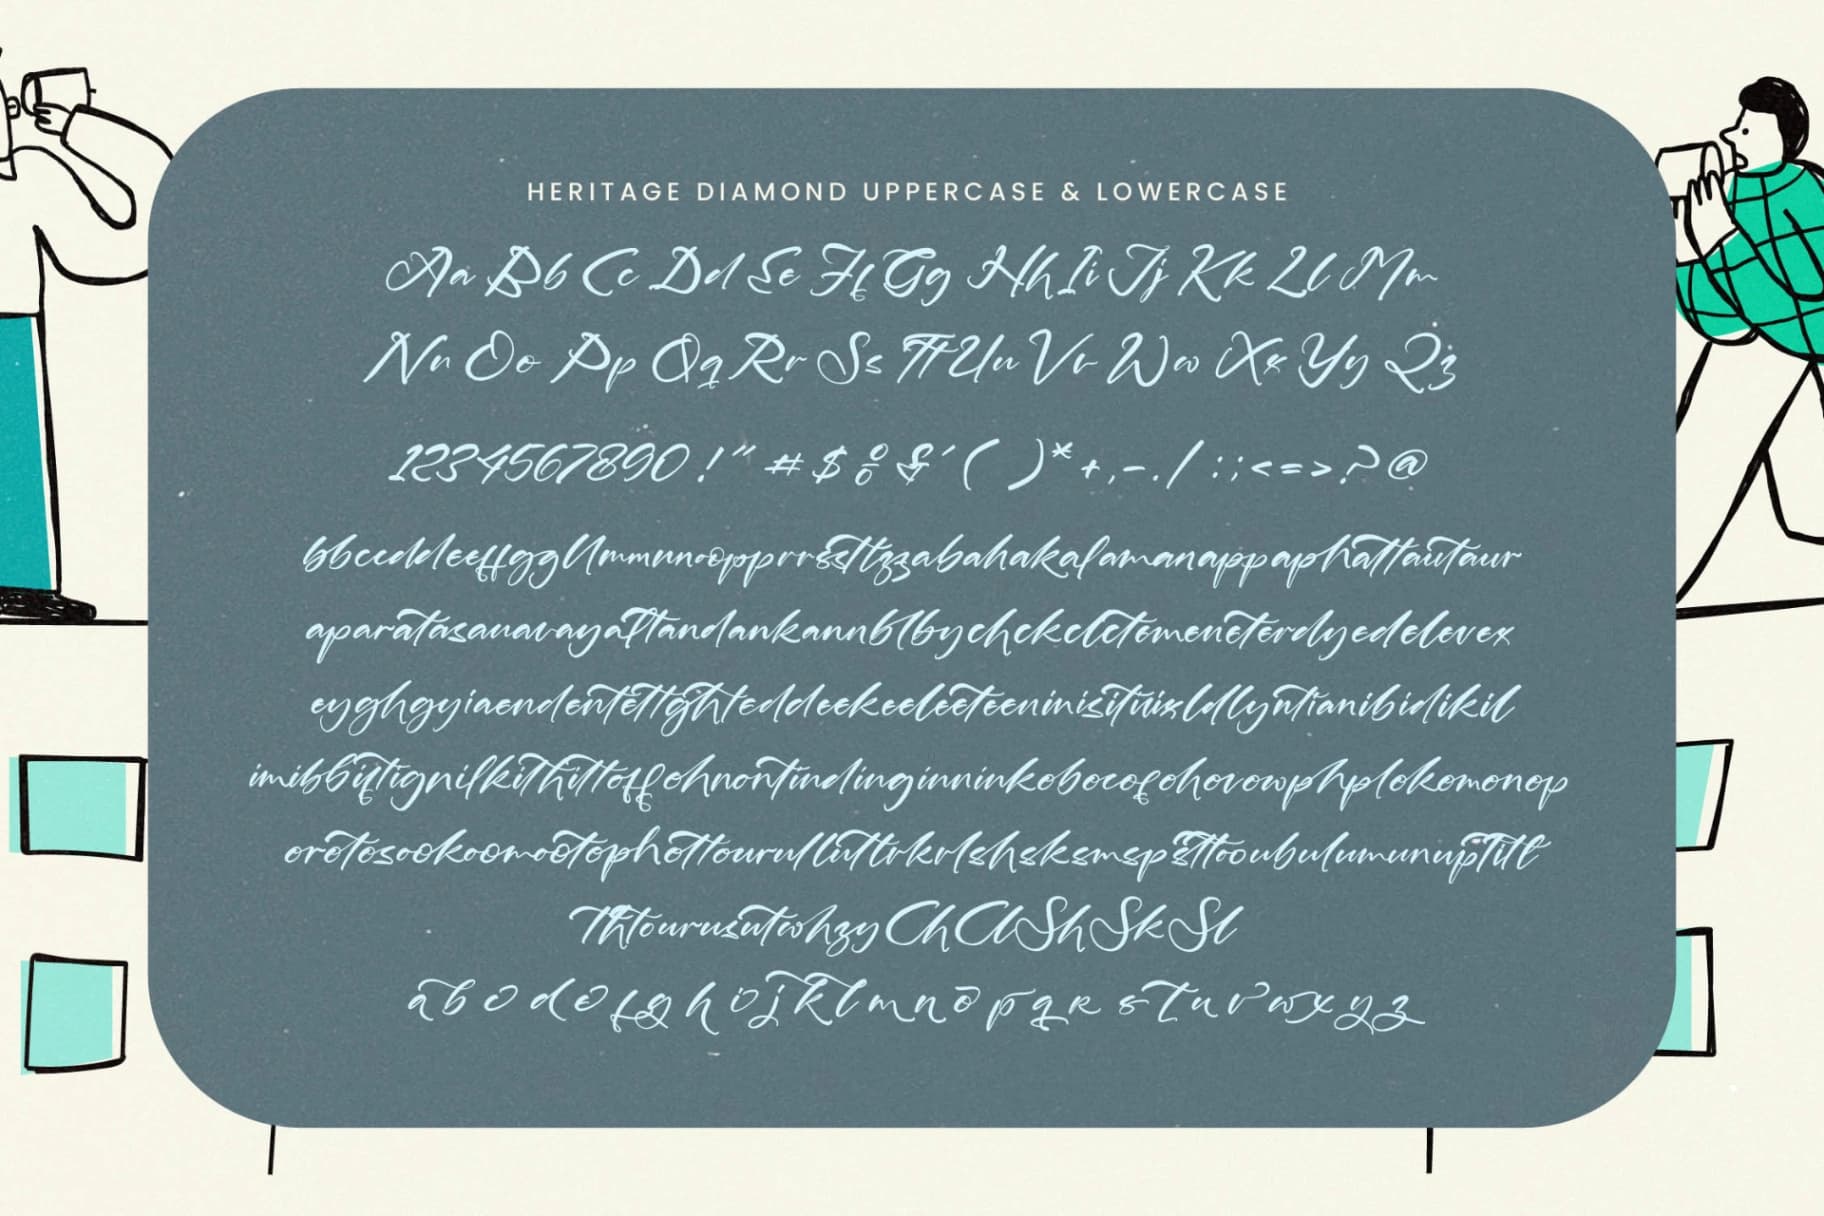 HERITAGE DIAMOND UPPERCASE & LOWERCASE
Aa Bb Cc Dd Ee Ff Gg Hh Ii Jj Kk Ll Mm
Nn Oo Pp Qq Rr Ss Tt Uu Vv Ww Xx Yy Zz
1234567890 ! " # $ % & ' ( ) * + , - . / : ; < = > ? @
bbccddeeffggllmmnnoopprrssttzzabahakalamanappaphattautaur
aparatasauavayaftandankannblbychckclctemeneterdyedelevex
eyghgyiaendentettghteddeekeeleeteeninisitivixldlyntianibidikil
imibbiftignilkithittoffohnontindinginninkobocofohovowphplokomonop
orotosookoomootophottourulluttrkrlshsksmspsttooubulumunupTitl
Thtourusutwhzy Ch Cl Sh Sk Sl
a b c d e f g h i j k l m n o p q r s t u v w x y z